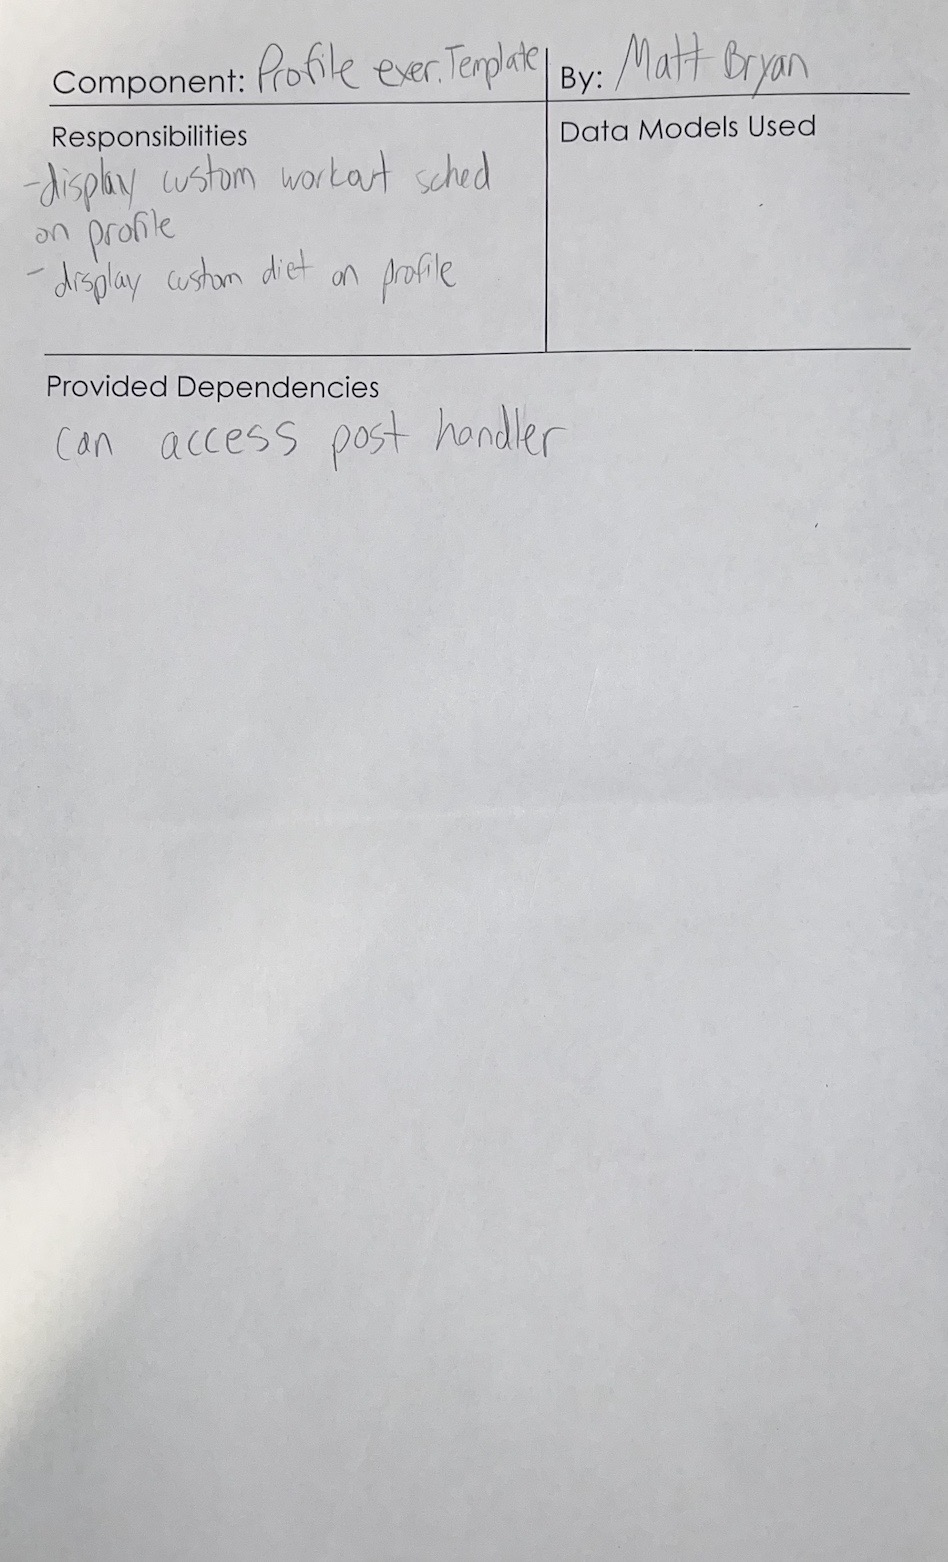 Component: Profile exer. Template
By: Matt Bryan
Responsibilities
-display custom workout sched
on profile
- display custom diet on profile
Data Models Used
Provided Dependencies
can access post handler